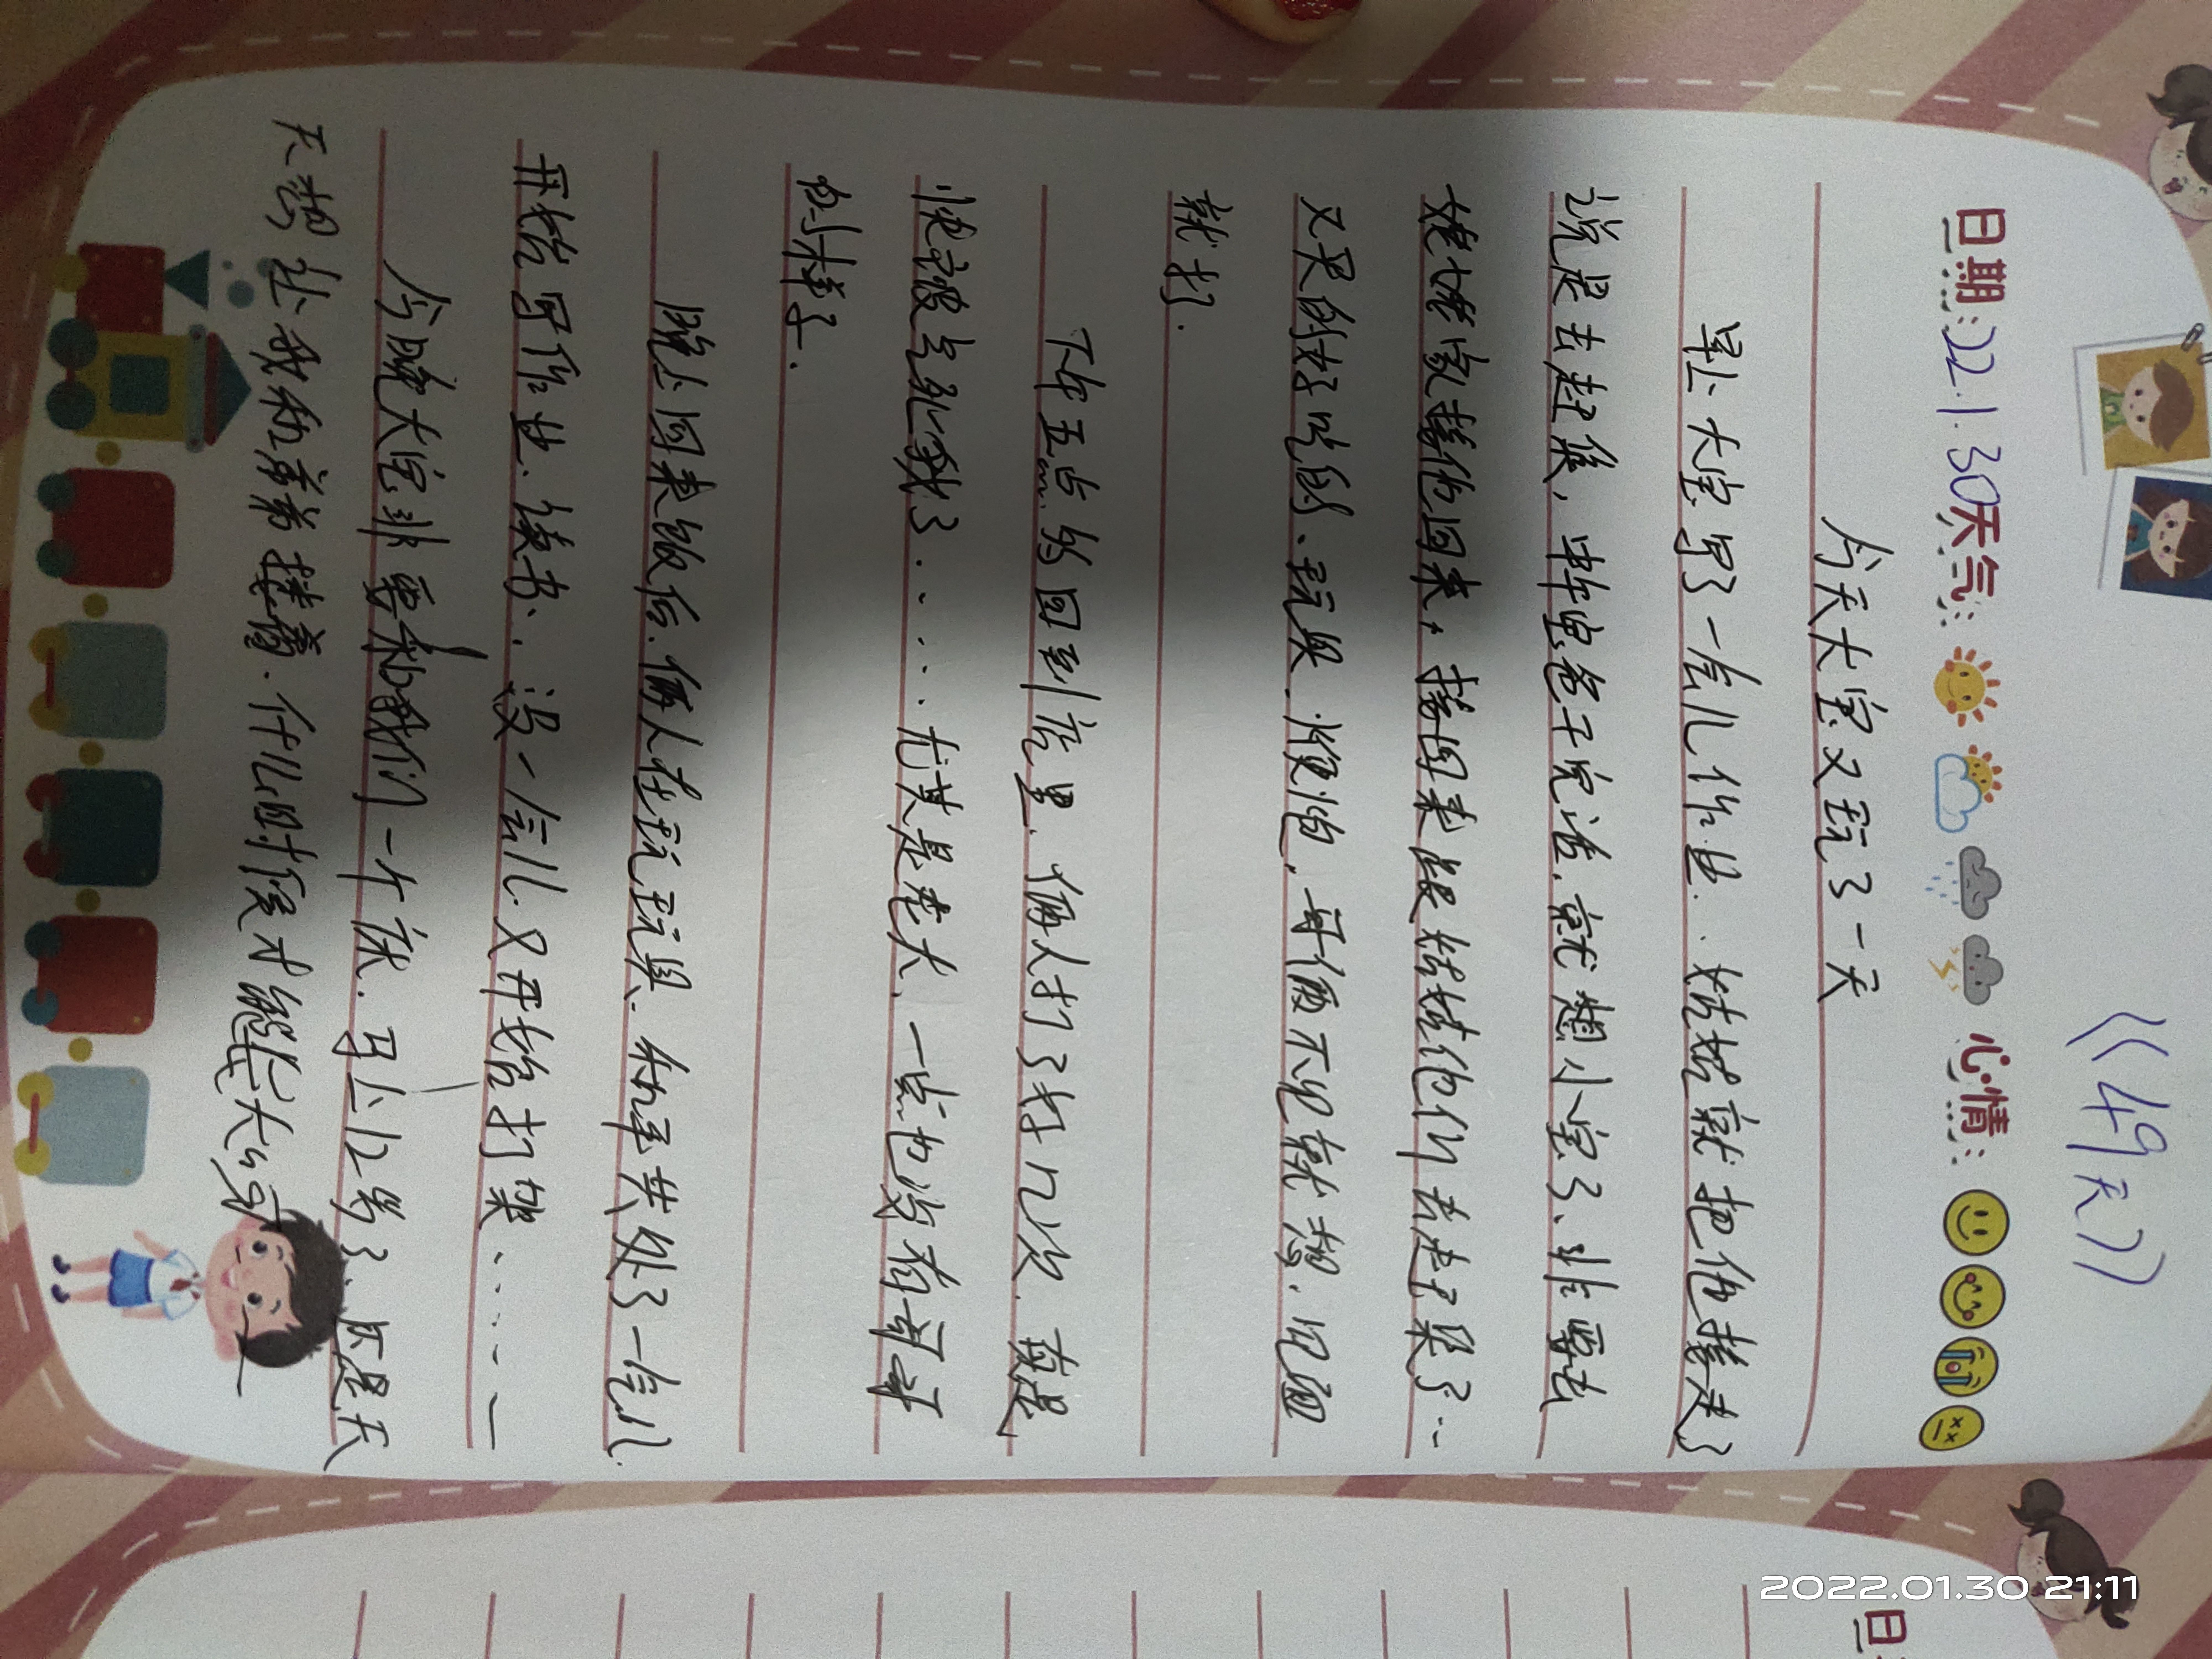 《49天》
日期:22.1.30天气: 心情:
今天大宝又玩了一天
早上大宝写了一会儿作业.、姑姑就把他接走了
说是去赶集,中午爸爸干完活.就想小宝了、非要去
姥姥家接他回来,接回来跟姑姑他们去赶集了…
又买的好吃的、玩具..哥俩不见就想.见面
就打.
下午五点多回到家里.俩人打了好几次.真是
快被气死我了......尤其是老大.一点也没有哥哥
的样子.
晚上回来饭后.俩人在玩玩具.和平共处了一会儿.
开始写作业.读书、.没一会儿.又开始打架......
今晚大宝非要和我们一个床.马上12岁了.还是天
天想让我和弟弟搂着.什么时候才能长大呀
2022.01.30 21:11
日